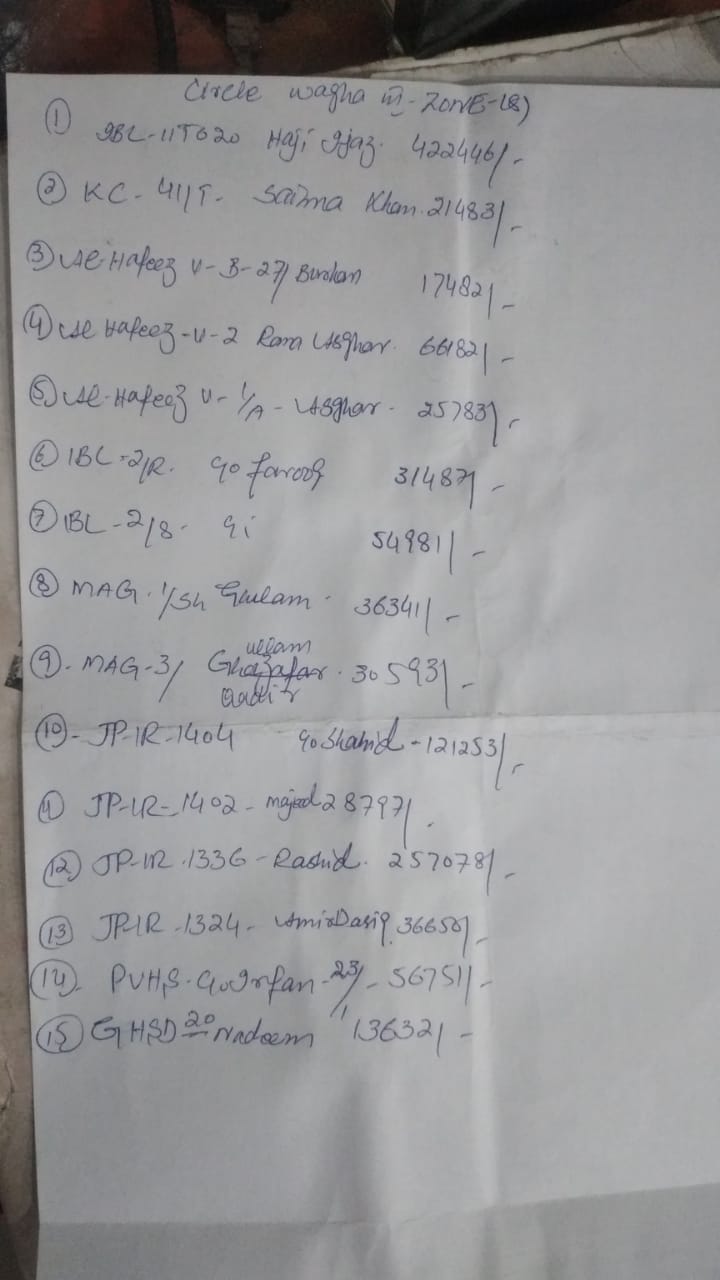 Circle wagha III - ZONE-(8)
① IBL-11T620 Haji Ijaz. 422446/-
② KC-41/T- Saima Khan. 21483/-
③ Al-Hafeez V-B-27/ Burhan 17482/-
④ Al Hafeez-V-2 Rana Asghar. 66182/-
⑤ Al-Hafeez V-1/A- Asghar- 25783/-
⑥ IBL-2/R. 90 farooq 31487/-
⑦ IBL-2/8- 54981/-
⑧ MAG. 1/Sh Ghulam- 36341/-
ullam
⑨- MAG-3/ Ghazafar. 30593/-
Qadir
⑩- JP-IR-1404 90 Shahid-121253/-
⑪ JP-IR-1402- majeed 28797/.
⑫ JP-IR.1336-Rashid. 257078/-
⑬ JP-IR-1324- Amir 36650/-
⑭. PVHS. Irfan-23/- 56751/-
⑮ GHSD 20 Nadeem 136321-